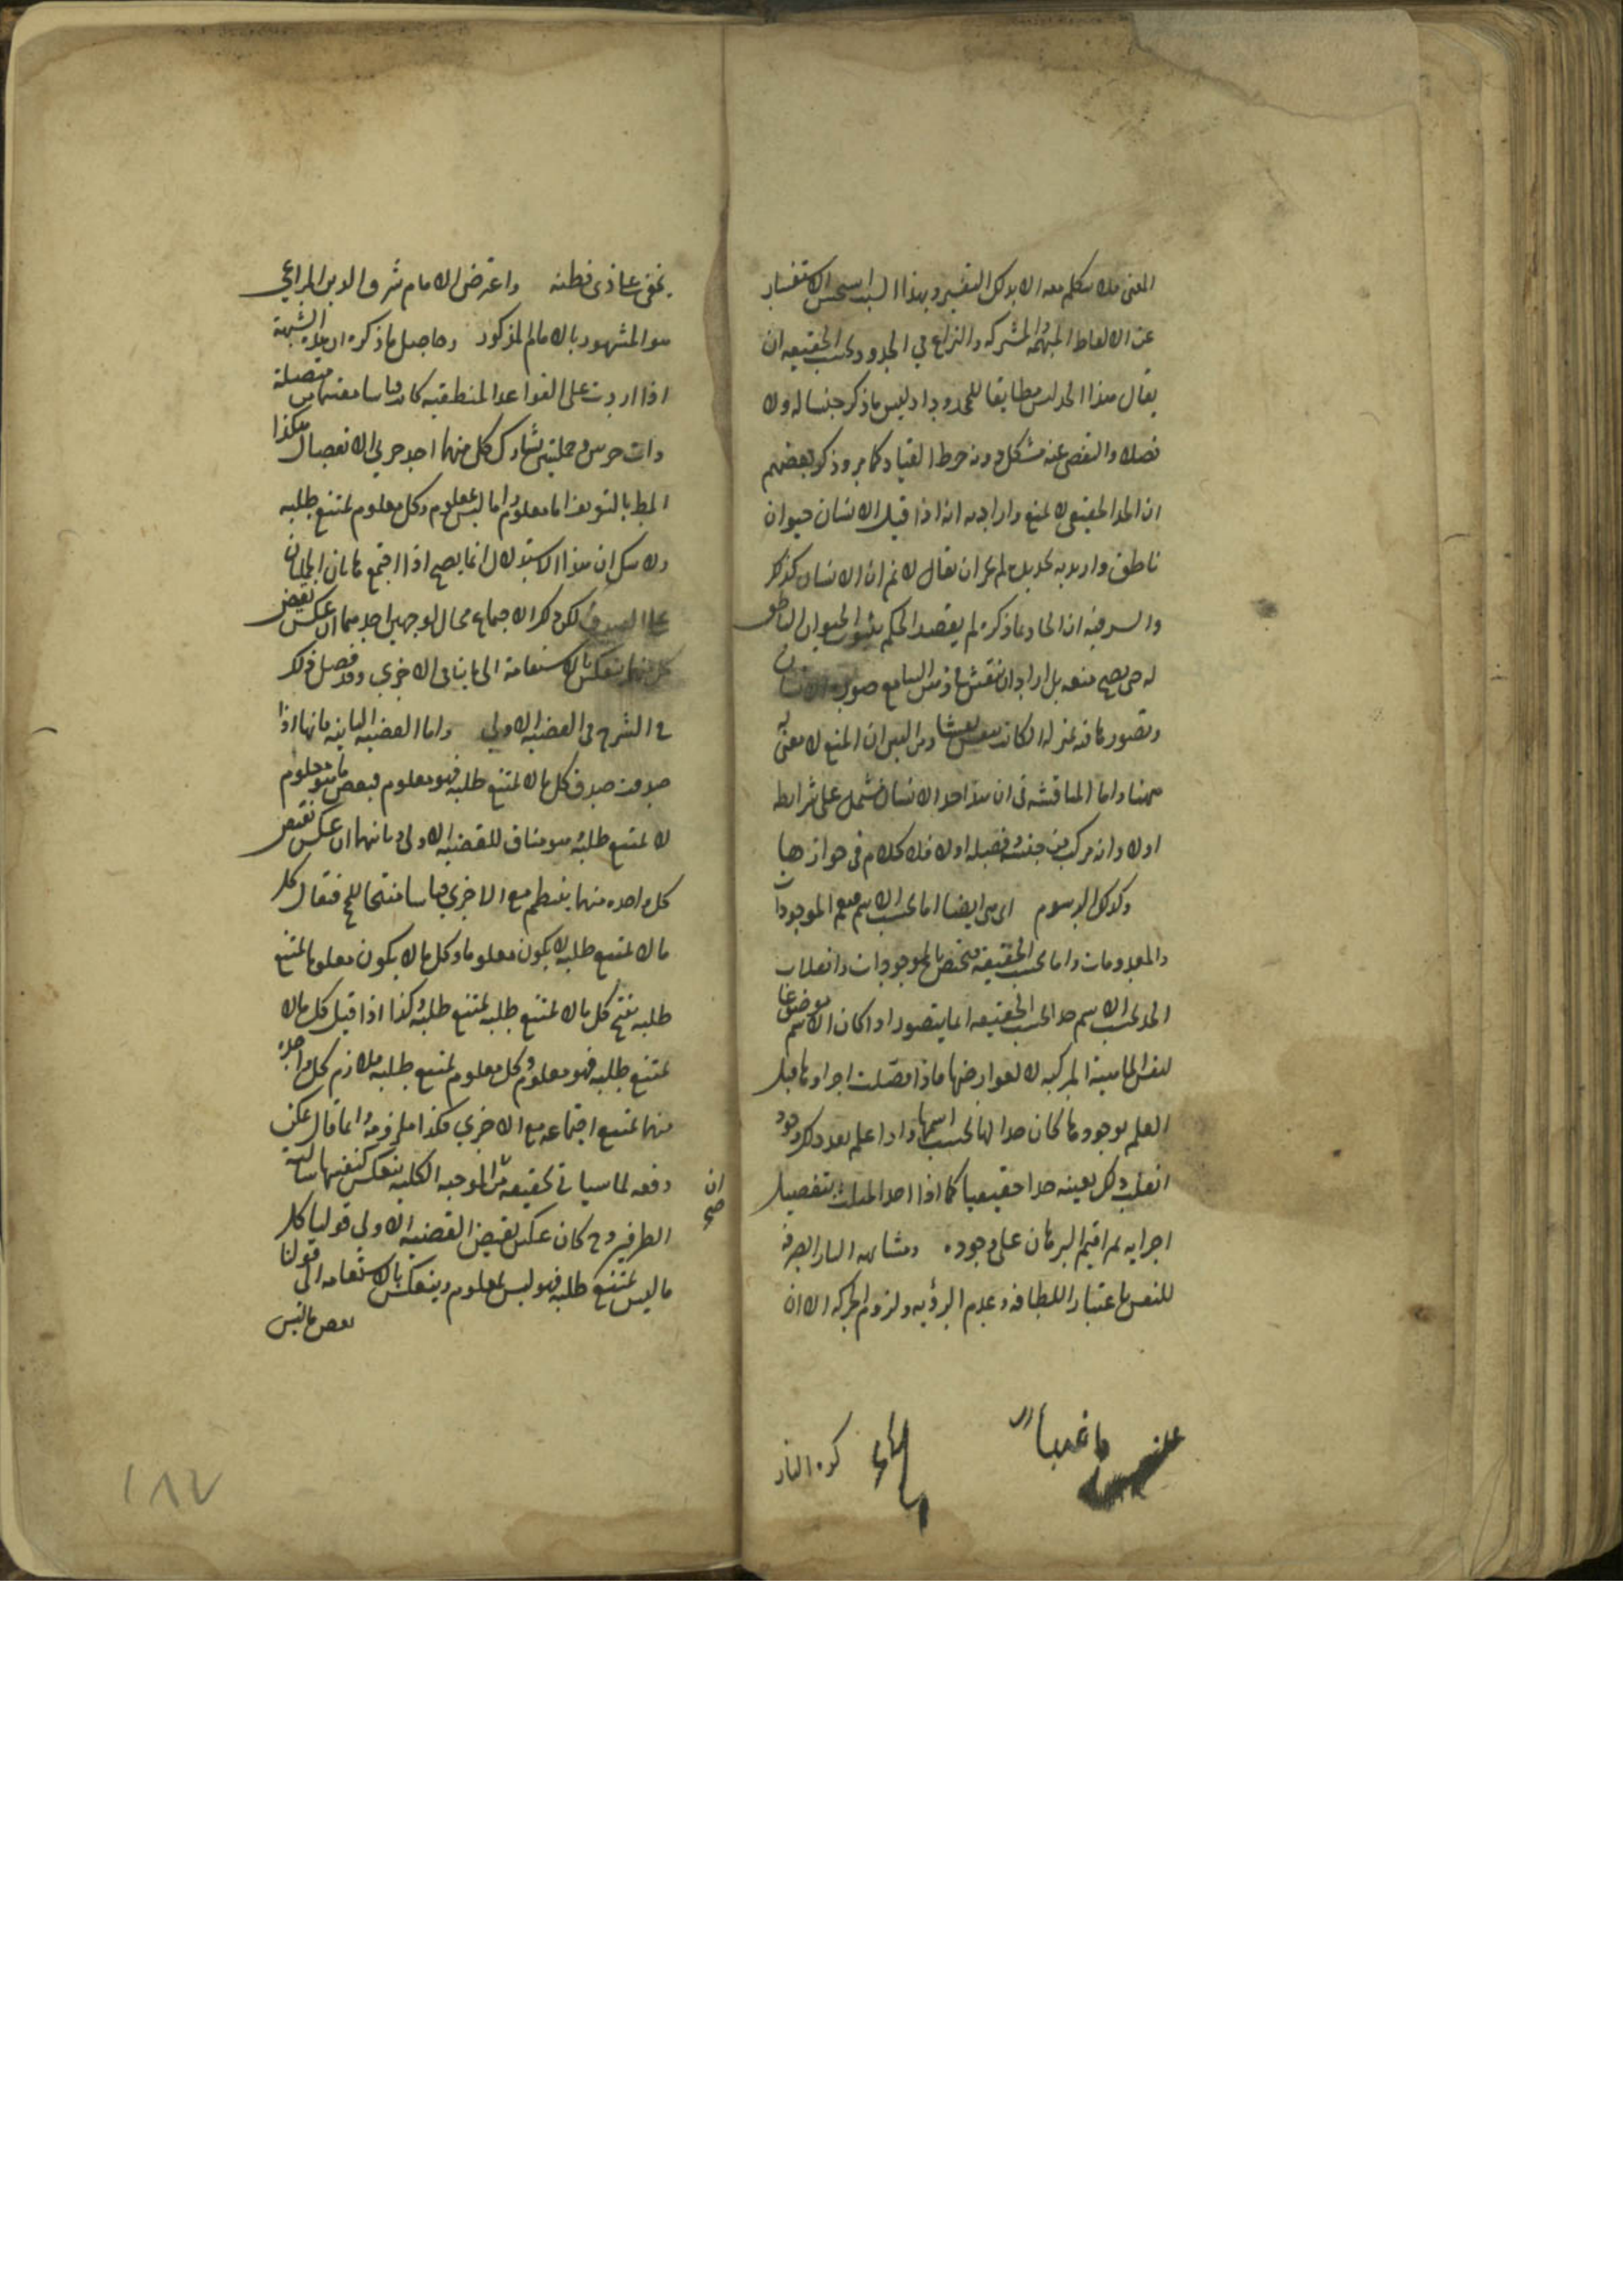 المعنى فلا يتكلم معه الا بذلك التفسير وبهذا السبب استحسن الاستفسار
عن الالفاظ المبهمة والمشتركة والنزاع في الحدود بحسب الحقيقة ان
يقال هذا الحد ليس مطابقا للمحدود اذ ليس ما ذكر جنسا له ولا
فصلا والتفصي عنه مشكل دونه خرط القتاد كما مر وذكر بعضهم
ان الحد الحقيقي لا يمنع واراد به انه اذا قيل الانسان حيوان
ناطق واريد به تحديده لم يجز ان يقال لا نم ان الانسان كذلك
والسر فيه ان الحاد بما ذكره لم يقصد الحكم بثبوت الحيوان الناطق
له حتى يصح منعه بل اراد ان ينقش في ذهن السامع صورة الانسان
وتصور ما فيه بمنزلة الكاتب ينقش نقشا ومن البين ان المنع لا معنى له
ههنا واما المناقشة في ان هذا حد الانسان مشتمل على شرايطه
اولا وانه مركب من جنسه وفصله اولا فلا كلام في جوازها
وكذلك الرسوم اي هي ايضا اما بحسب الاسم فيعم الموجودات
والمعدومات واما بحسب الحقيقة فيختص بالموجودات وانقلاب
الحد بحسب الاسم حدا بحسب الحقيقة انما يتصور اذا كان الاسم موضوعا
لنفس الماهية المركبة لا لعوارضها فاذا فصلت اجزاوها قبل
العلم بوجودها كان حدا لها بحسب اسمها واذا علم بعد ذلك وجوده
انقلب ذلك بعينه حدا حقيقيا كما اذا حد المثلث بتفصيل
اجزايه ثم اقيم البرهان على وجوده ومشابهة النار الصرفة
للنفس باعتبار اللطافة وعدم الرؤية ولزوم الحركة الا ان
كرة النار
يخفى على ذي فطنه واعترض الامام شرف الدين المراغي
هو المشهور بالامام المذكور وحاصل ما ذكره ان هذه الشبهة
اذا اردت على القواعد المنطقية كانت قياسا مقسما من متصلة
ذات جزءين وحمليتين يشارك كل منهما احد جزءي الانفصال هكذا
المط بالتعريف اما معلوم واما ليس بمعلوم وكل معلوم يمتنع طلبه
ولا شك ان هذا الاستدلال انما يصح اذا اجتمع هاتان الحمليتان
على الصدق لكن ذلك الاجتماع محال لوجهين احدهما ان عكس نقيض
كل منهما ينعكس بالاستقامة الى ما ينافي الاخرى وقد فصل ذلك
في الشرح في القضية الاولى واما القضية الثانية فانها اذا
صدقت صدق كل ما لا يمتنع طلبه فهو معلوم فبعض ما هو معلوم
لا يمتنع طلبه وهو مناف للقضية الاولى وثانيهما ان عكس نقيض
كل واحده منهما ينتظم مع الاخرى قياسا منتجا للمح فيقال كل
ما لا يمتنع طلبه لا يكون معلوما وكل ما لا يكون معلوما يمتنع
طلبه ينتج كل ما لا يمتنع طلبه يمتنع طلبه وكذا اذا قيل كل ما لا
يمتنع طلبه فهو معلوم وكل معلوم يمتنع طلبه فلازم كل واحدة
منهما يمتنع اجتماعه مع الاخرى فكذا ملزومه وانما قال يمكن
دفعه لما سياتي تحقيقه من ان الموجبة الكلية تنعكس كنفسها سالبة
ان صح
الطرفين وح كان عكس نقيض القضية الاولى قولنا كل
ما ليس يمتنع طلبه فهو ليس بمعلوم وينعكس بالاستقامة الى قولنا
بعض ما ليس
١٨٧